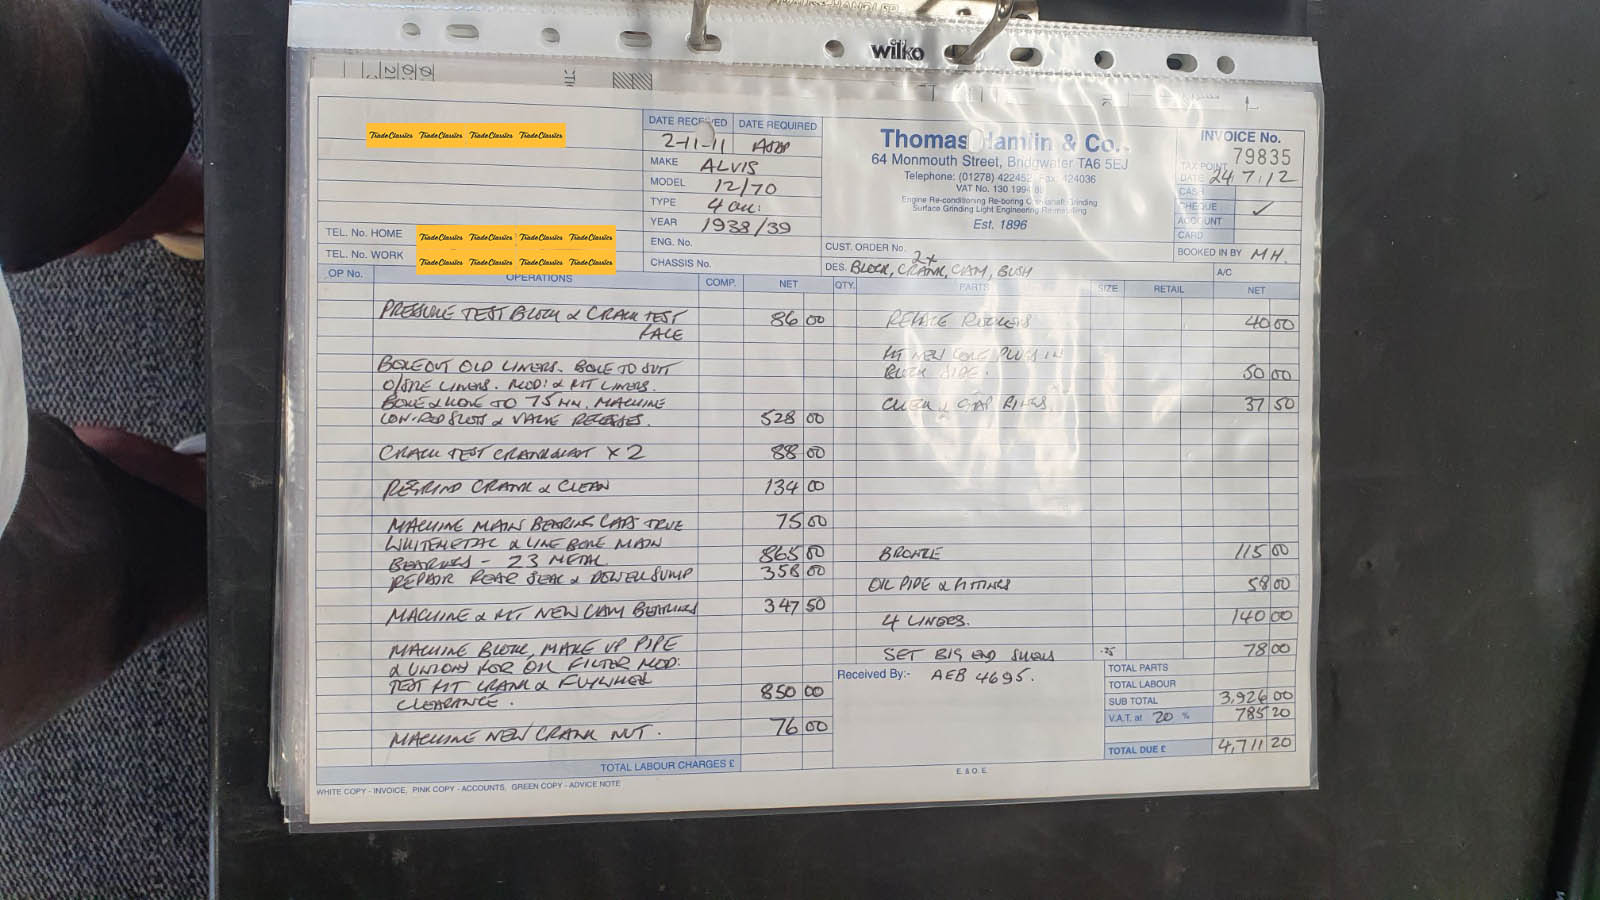 wilko
TradeClassics TradeClassics TradeClassics TradeClassics
DATE RECEIVED DATE REQUIRED
2-11-11 ASAP
MAKE ALVIS
MODEL 12/70
TYPE 4 CYL:
YEAR 1938/39
ENG. No.
CHASSIS No.
TEL. No. HOME TradeClassics TradeClassics TradeClassics TradeClassics
TEL. No. WORK TradeClassics TradeClassics TradeClassics TradeClassics
Thomas Hamlin & Co.
64 Monmouth Street, Bridgwater TA6 5EJ
Telephone: (01278) 422452 Fax: 424036
VAT No. 130 199
Engine Re-conditioning Re-boring Crankshaft Grinding
Surface Grinding Light Engineering Re-metalling
Est. 1896
INVOICE No.
79835
TAX POINT
DATE 24.7.12
CASH
CHEQUE ✓
ACCOUNT
CARD
CUST. ORDER No.
BOOKED IN BY MH.
2x
DES. BLOCK, CRANK, CAM, BUSH
A/C
OP No. OPERATIONS COMP. NET QTY. PARTS SIZE RETAIL NET
PRESSURE TEST BLOCK & CRACK TEST 86 00
FACE
BORE OUT OLD LINERS. BORE TO SUIT
O/SIZE LINERS. MOD: & FIT LINERS.
BORE & HONE TO 75MM. MACHINE
CON-ROD SLOTS & VALVE RECESSES. 528 00
CRACK TEST CRANKSHAFT X 2 88 00
REGRIND CRANK & CLEAN 134 00
MACHINE MAIN BEARING CAPS TRUE 75 00
WHITEMETAL & LINE BORE MAIN
BEARINGS - 23 METAL 865 00
REPAIR REAR SEAL & DOWEL SUMP 358 00
MACHINE & FIT NEW CAM BEARINGS 347 50
MACHINE BLOCK, MAKE UP PIPE
& UNIONS FOR OIL FILTER MOD:
TEST FIT CRANK & FLYWHEEL 850 00
CLEARANCE.
MACHINE NEW CRANK NUT. 76 00
TOTAL LABOUR CHARGES £
REFACE ROCKERS 40 00
FIT NEW CORE PLUGS IN
BLOCK SIDE. 50 00
CHECK & GAP RINGS. 37 50
BRONZE 115 00
OIL PIPE & FITTINGS 58 00
4 LINERS. 140 00
SET BIG END SHELLS 78 00
Received By:- AEB 4695.
TOTAL PARTS
TOTAL LABOUR
SUB TOTAL 3,926 00
V.A.T. at 20 % 785 20
TOTAL DUE £ 4,711 20
E. & O. E.
WHITE COPY - INVOICE, PINK COPY - ACCOUNTS, GREEN COPY - ADVICE NOTE